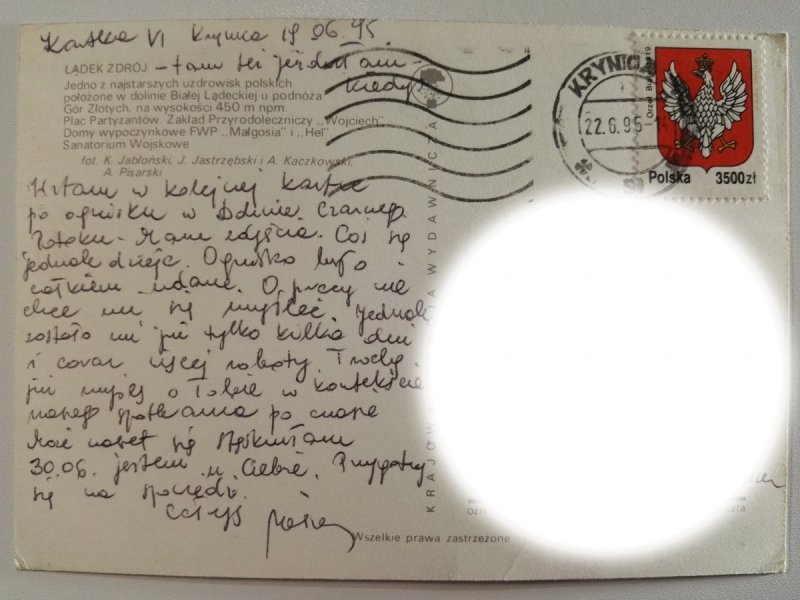 Kartka VI Krynica 19 06. 95
LĄDEK ZDRÓJ – tam też jeździłam
kiedyś
Jedno z najstarszych uzdrowisk polskich
położone w dolinie Białej Lądeckiej u podnóża
Gór Złotych, na wysokości 450 m npm.
Plac Partyzantów. Zakład Przyrodoleczniczy „Wojciech"
Domy wypoczynkowe FWP „Małgosia" i „Hel"
Sanatorium Wojskowe
fot. K. Jabłoński, J. Jastrzębski i A. Kaczkowski,
A. Pisarski
KRYNICA
22.6.95
Orzeł Bi
Polska 3500 zł
Witam w kolejnej kartce
po ognisku w Dolinie Czarnego
Potoku. Mam zdjęcia. Coś się
jednak dzieje. Ognisko było i
całkiem udane. O pracy nie
chce mi się myśleć, jednak
zostało mi już tylko kilka dni
i coraz więcej roboty. Trochę
już myślę o Tobie w kontekście
naszego spotkania po
30.06. jestem u Ciebie. Przygotuj
się na
KRAJOWA
A WYDAWNICZA
Wszelkie prawa zastrzeżone